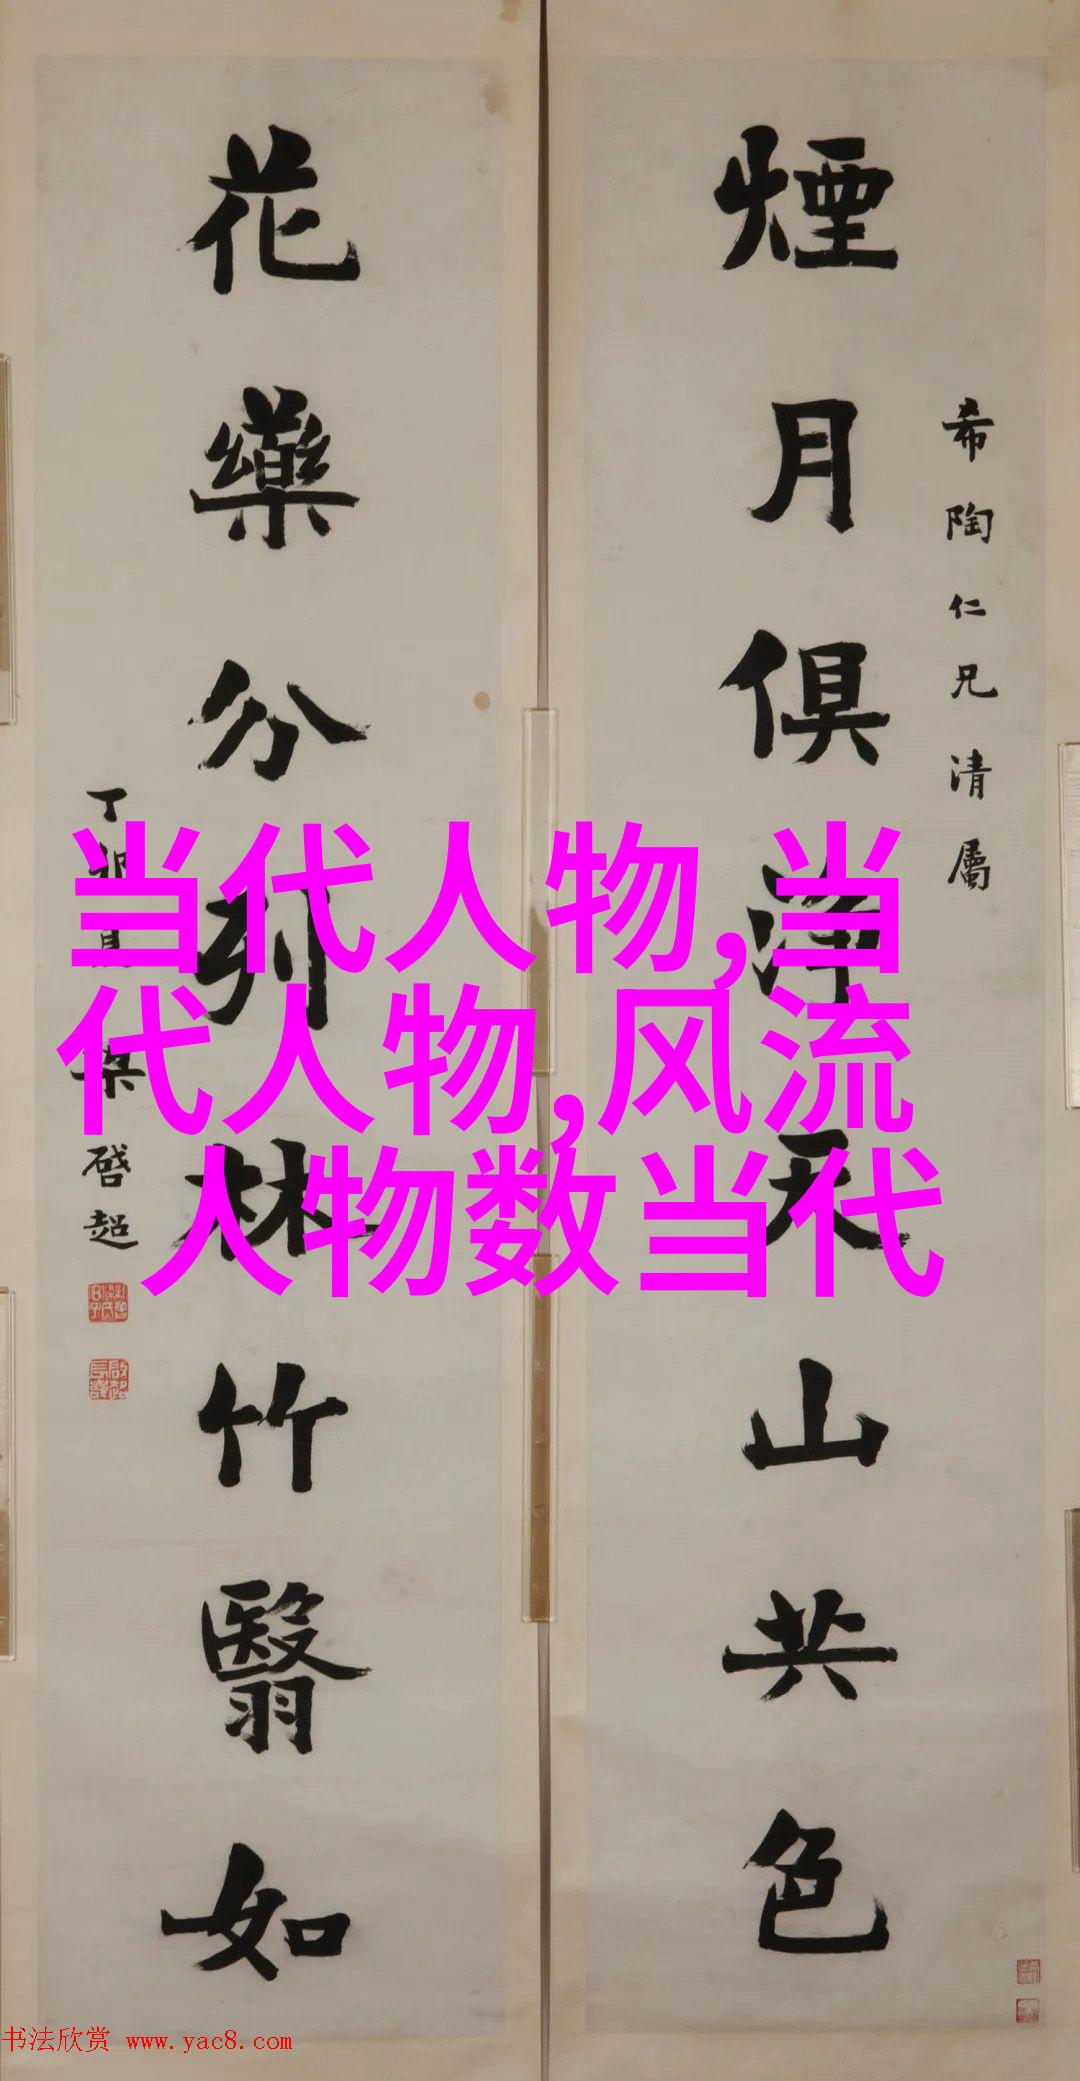 煙月俱淨天山共色
希陶仁兄清屬
花藥分列林竹翳如
丁卯
梁啓超
当代人物,当
代人物,风流
人物数当代
书法欣赏 www.yac8.com